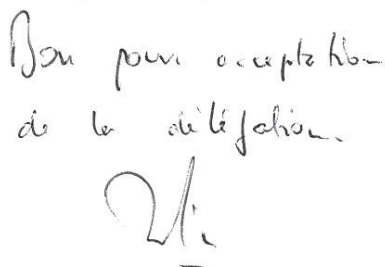 Bon pour acceptation
de la délégation.